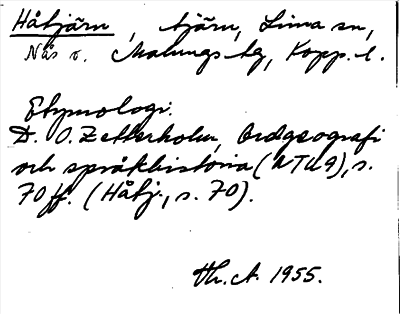 Håtjärn, tjärn, Lima sn,
Nås v. Malungs tg, Kopp. l.
Etymologi.
D. O. Zetterholm, Ordgeografi
och språkhistoria (NTU 9), s.
70 ff. (Håtj., s. 70).
Hr. A. 1955.